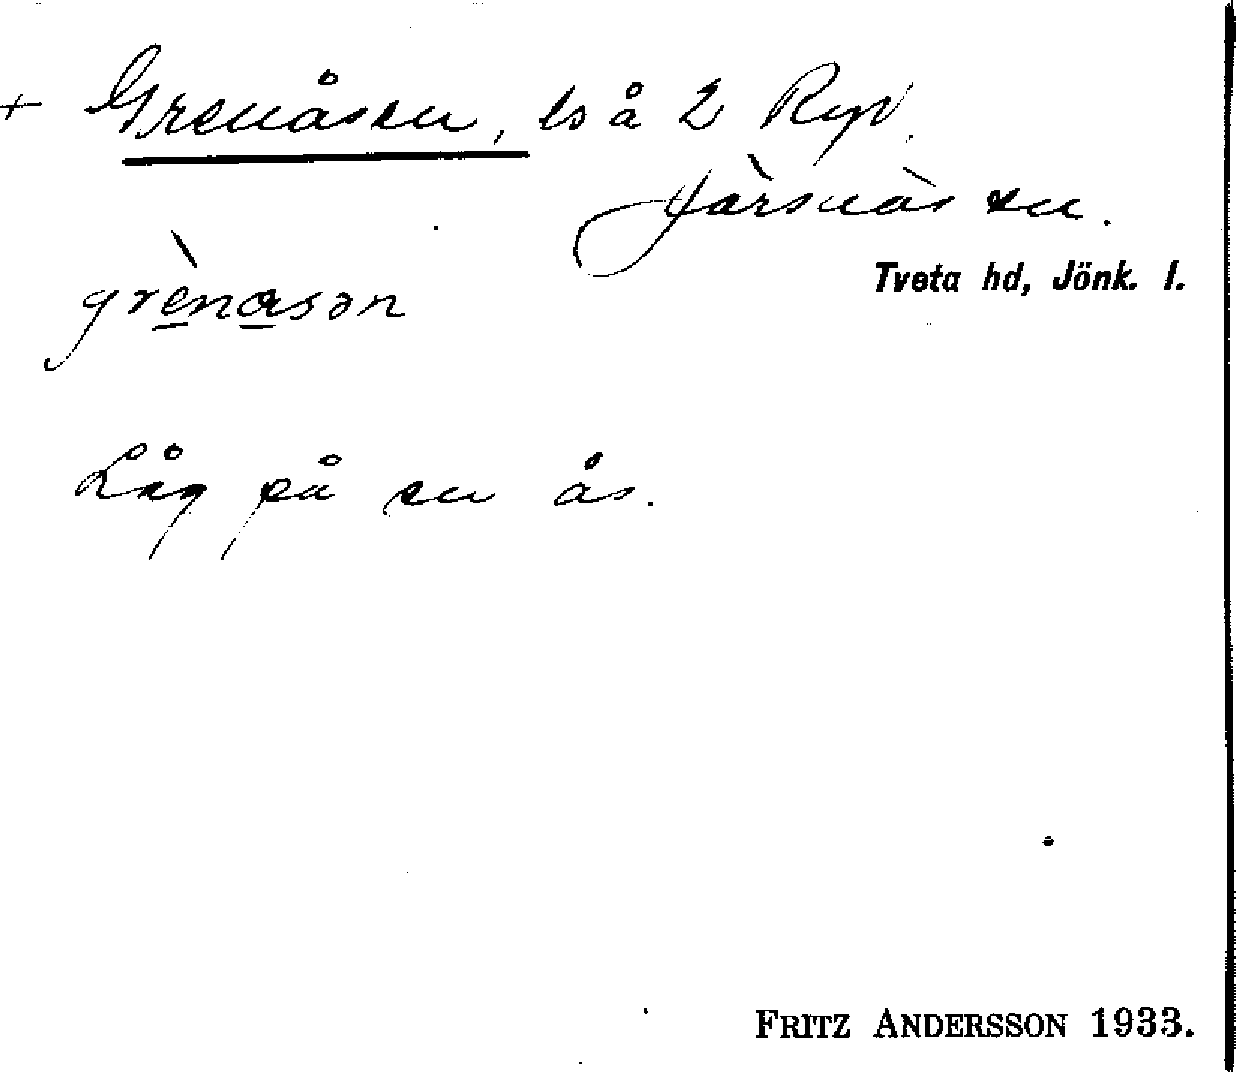 + Grenåsen, ls å 2 Ryd.
Järsnäs sn.
Tveta hd, Jönk. l.
grènasən
Låg på en ås.
FRITZ ANDERSSON 1933.